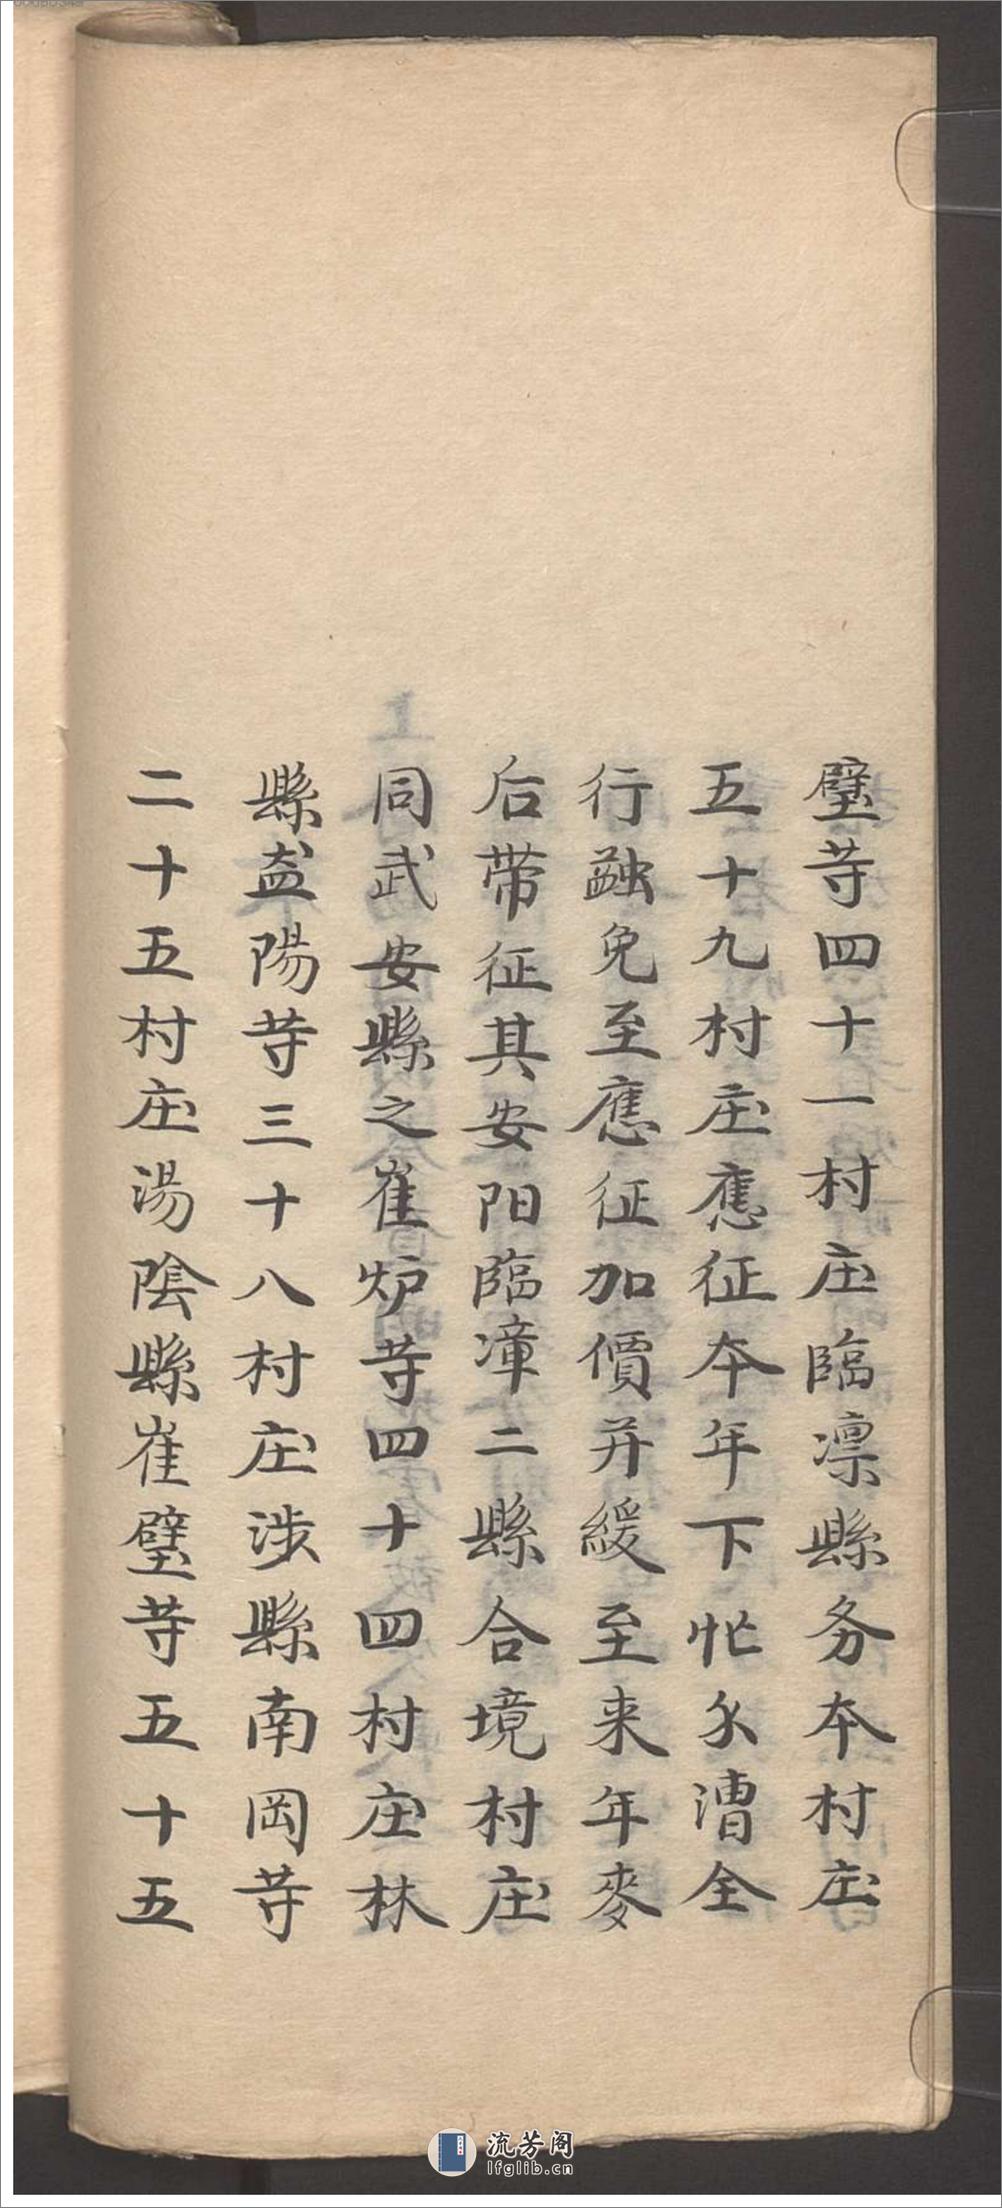 璧䓁四十一村庄臨漳縣务本村庄
五十九村庄應征本年下忙分漕全
行蠲免至應征加價并緩至来年麥
后带征其安阳臨漳二縣合境村庄
同武安縣之崔炉䓁四十四村庄林
縣盍陽䓁三十八村庄涉縣南岡䓁
二十五村庄湯陰縣崔璧䓁五十五
流芳阁
lfglib.cn